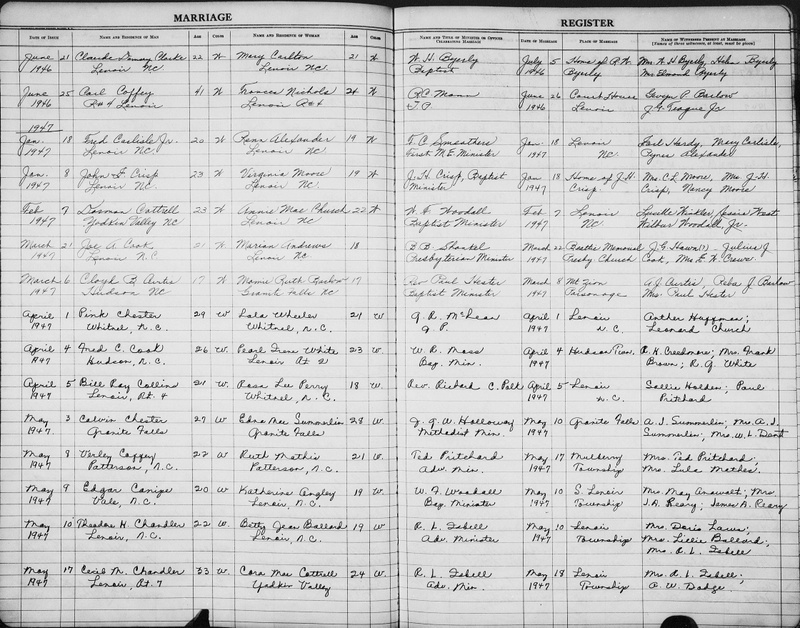 MARRIAGE
REGISTER
DATE OF ISSUE NAME AND RESIDENCE OF MAN AGE COLOR NAME AND RESIDENCE OF WOMAN AGE COLOR NAME AND TITLE OF MINISTER OR OFFICER CELEBRATING MARRIAGE DATE OF MARRIAGE PLACE OF MARRIAGE NAME OF WITNESSES PRESENT AT MARRIAGE
June 21 Clarke 22 W Mary Carlton 21 W W. H. Byerly July 5 Home of Mrs W H Byerly, Byerly
1946 Lenoir NC Lenoir NC Baptist 1946 Byerly Mrs Byerly
June 25 Carl Coffey 41 W Frances Nichols 24 W R.C. Mann June 26 Court House P Barlow
1946 R#4 Lenoir Lenoir R#4 J.P. 1946 Lenoir J. F. Teague Jr
1947
Jan. 18 Fred Carlisle Jr. 20 W Alexander 19 W C. Smathers Jan. 18 Lenoir Earl Hardy, Mary Carlisle,
1947 Lenoir NC Lenoir NC First M.E. Minister 1947 NC Alexander
Jan. 8 John F Crisp 23 W Virginia Moore 19 W J. H. Crisp, Baptist Jan 18 Home of J.H. Mrs. C. L. Moore, Mrs. J. H.
1947 Lenoir NC Lenoir NC. Minister 1947 Crisp Crisp, Nancy Moore
Feb 7 Cottrell 23 W Annie Mae Church 22 W W. F. Woodall Feb 7 Lenoir Lucille Winkler, West
1947 Yadkin Valley NC Lenoir NC Baptist Minister 1947 NC Wilbur Woodall, Jr.
March 21 Joe A. Cook, 21 W Marian Andrews 18 B B Shankel March 22 Memorial J. G. Hawn(?) - Julius J
1947 Lenoir N.C Lenoir NC Presbyterian Minister 1947 Presby Church Cook, Mrs. E. W. Crowe
March 6 Cloyd B. Curtis 17 W Mamie Ruth Barlow 17 Rev Paul Hester March 8 Mt Zion A J Curtis, Reba J Barlow
1947 Hudson NC Granite Falls NC Baptist Minister 1947 Parsonage Mrs. Paul Hester
April 1 Pink Chester 29 W Lala Wheeler 21 W. G. R. McLean April 1 Lenoir Anther Huffman;
1947 Whitnel, N.C. Whitnel, N.C. J P. 1947 N.C. Leonard Church
April 4 Fred C. Cook 26 W. Pearl Irene White 23 W. W. R. Moss April 4 Hudson R. H. Creedmore; Mrs. Frank
1947 Hudson, N.C. Lenoir Rt. 2 Bap. Min. 1947 Brown; R. G. White
April 5 Bill Ray Collins 21 W. Rosa Lee Perry 18 W. Rev. Richard C. Polk April 5 Lenoir Sallie Holden; Paul
1947 Lenoir, Rt. 4 Whitnel, N.C. 1947 N.C. Pritchard
May 3 Calvin Chester 27 W. Edna Mae Summerlin 28 W. J. G. W. Holloway May 10 Granite Falls A. J. Summerlin; Mrs. A. J.
1947. Granite Falls Granite Falls Methodist Min. 1947 Summerlin; Mrs. W. L. Dent
May 8 Verley Coffey 22 W Ruth Mathis 21 W. Ted Pritchard May 17 Mulberry Mrs. Ted Pritchard;
1947 Patterson, N.C. Patterson, N.C. Adv. Min. 1947 Township Mrs. Lula Mathes.
May 9 Edgar Canipe 20 W Katherine Angley 19 W. W. F. Woodall May 10 S. Lenoir Mrs May; Mrs.
1947 Vale, N.C. Lenoir, N.C. Bap. Minister 1947 Township J. A. Reary; James A. Reary
May 10 Theodore H. Chandler 22 W. Betty Jean Ballard 19 W. R. L. Isbell May 10 Lenoir Mrs. Doris Laws;
1947 Lenoir, N.C. Lenoir, N.C. Adv. Minister 1947 Township Mrs. Lillie Ballard;
Mrs. R. L. Isbell
May 17 Cecil M. Chandler 33 W. Cora Mae Cottrell 24 W. R. L. Isbell May 18 Lenoir Mrs. R. L. Isbell;
1947 Lenoir, Rt. 7 Yadkin Valley Adv. Min. 1947 Township A. W. Dodge.